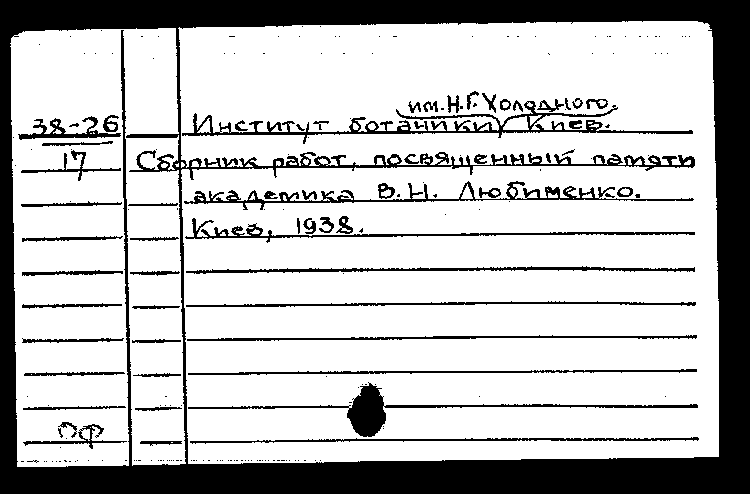 им. Н.Г. Холодного.
38-26 Институт ботаники, Киев.
17 Сборник работ, посвященный памяти
академика В.Н. Любименко.
Киев, 1938.
ПФ